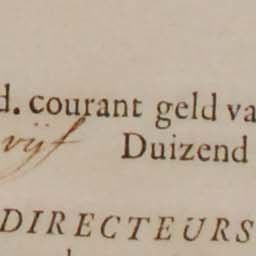 d. courant geld va
vijf Duizend
DIRECTEURS